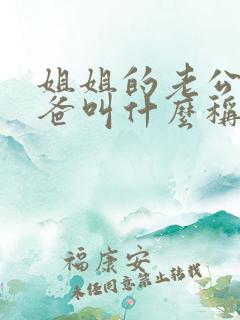 姐姐的老公
爸叫什麼稱
福康安
未经同意禁止转载